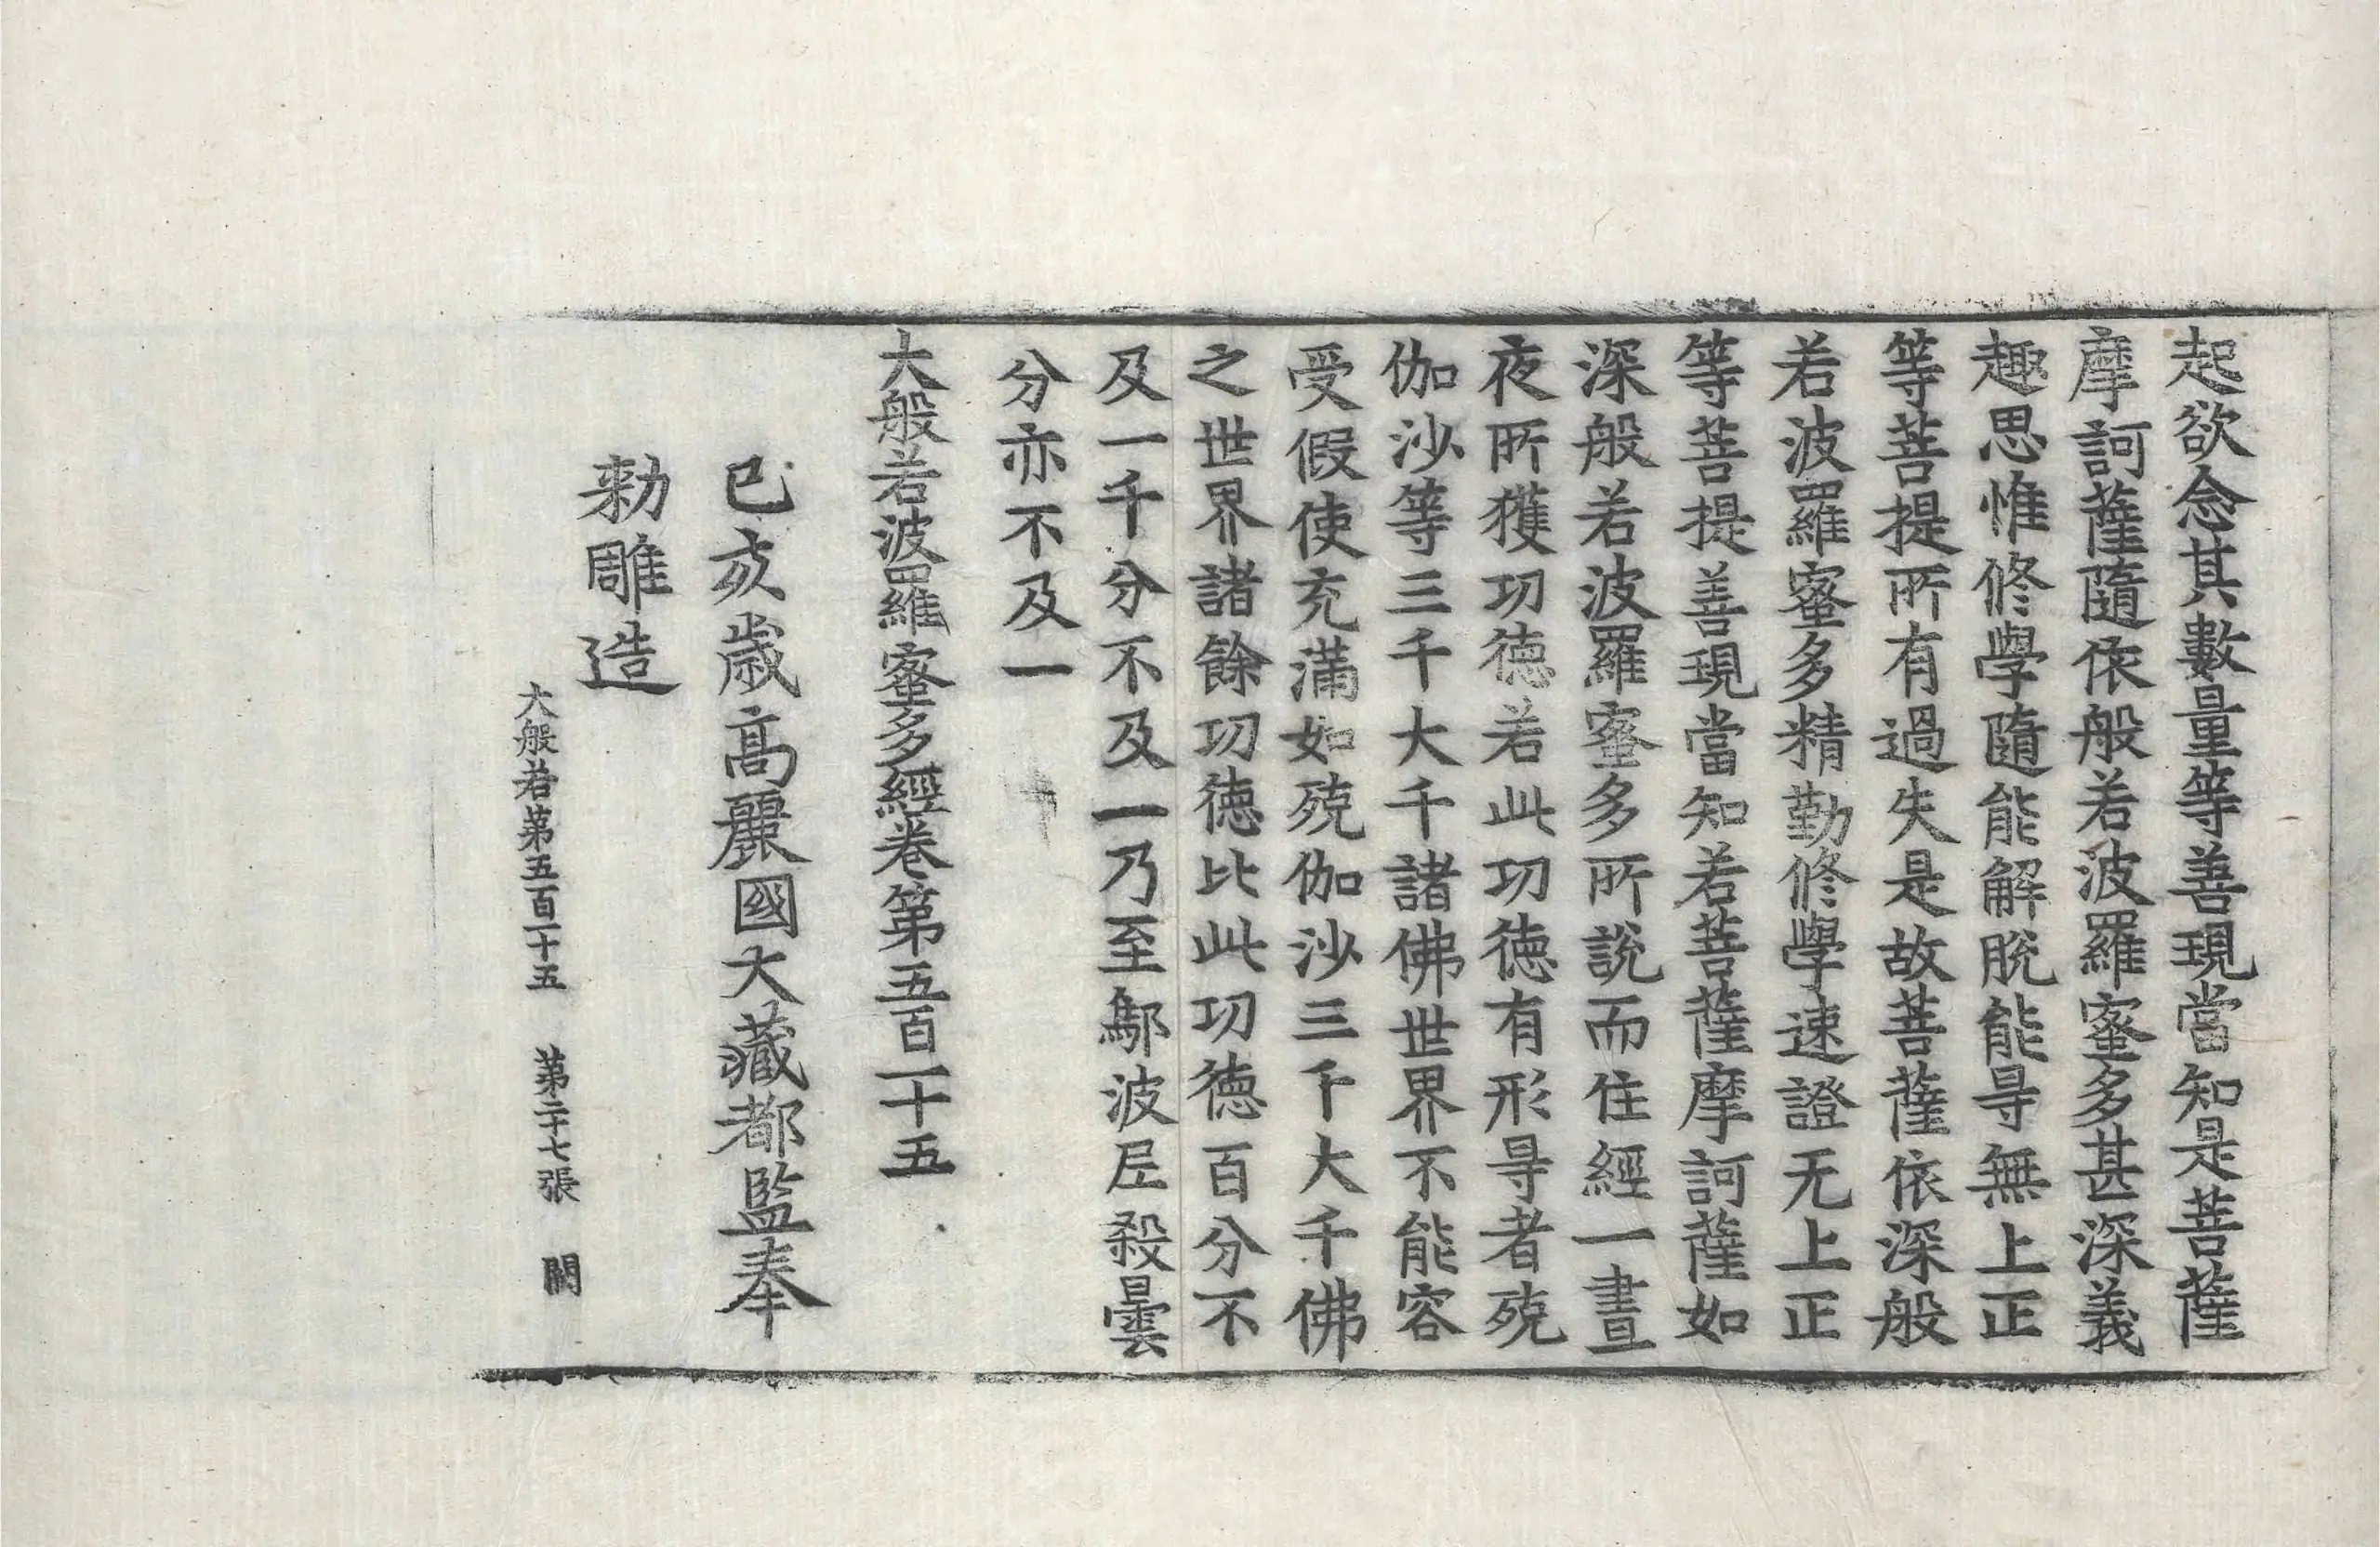 起欲念其數量等善現當知是菩薩
摩訶薩隨依般若波羅蜜多甚深義
趣思惟修學隨能解脫能㝵無上正
等菩提所有過失是故菩薩依深般
若波羅蜜多精勤修學速證无上正
等菩提善現當知若菩薩摩訶薩如
深般若波羅蜜多所說而住經一晝
夜所獲功德若此功德有形㝵者殑
伽沙等三千大千諸佛世界不能容
受假使充滿如殑伽沙三千大千佛
之世界諸餘功德比此功德百分不
及一千分不及一乃至鄔波尼殺曇
分亦不及一
大般若波羅蜜多經卷第五百一十五
已亥歲高麗國大藏都監奉
勅雕造
大般若第五百一十五 第二十七張 闕